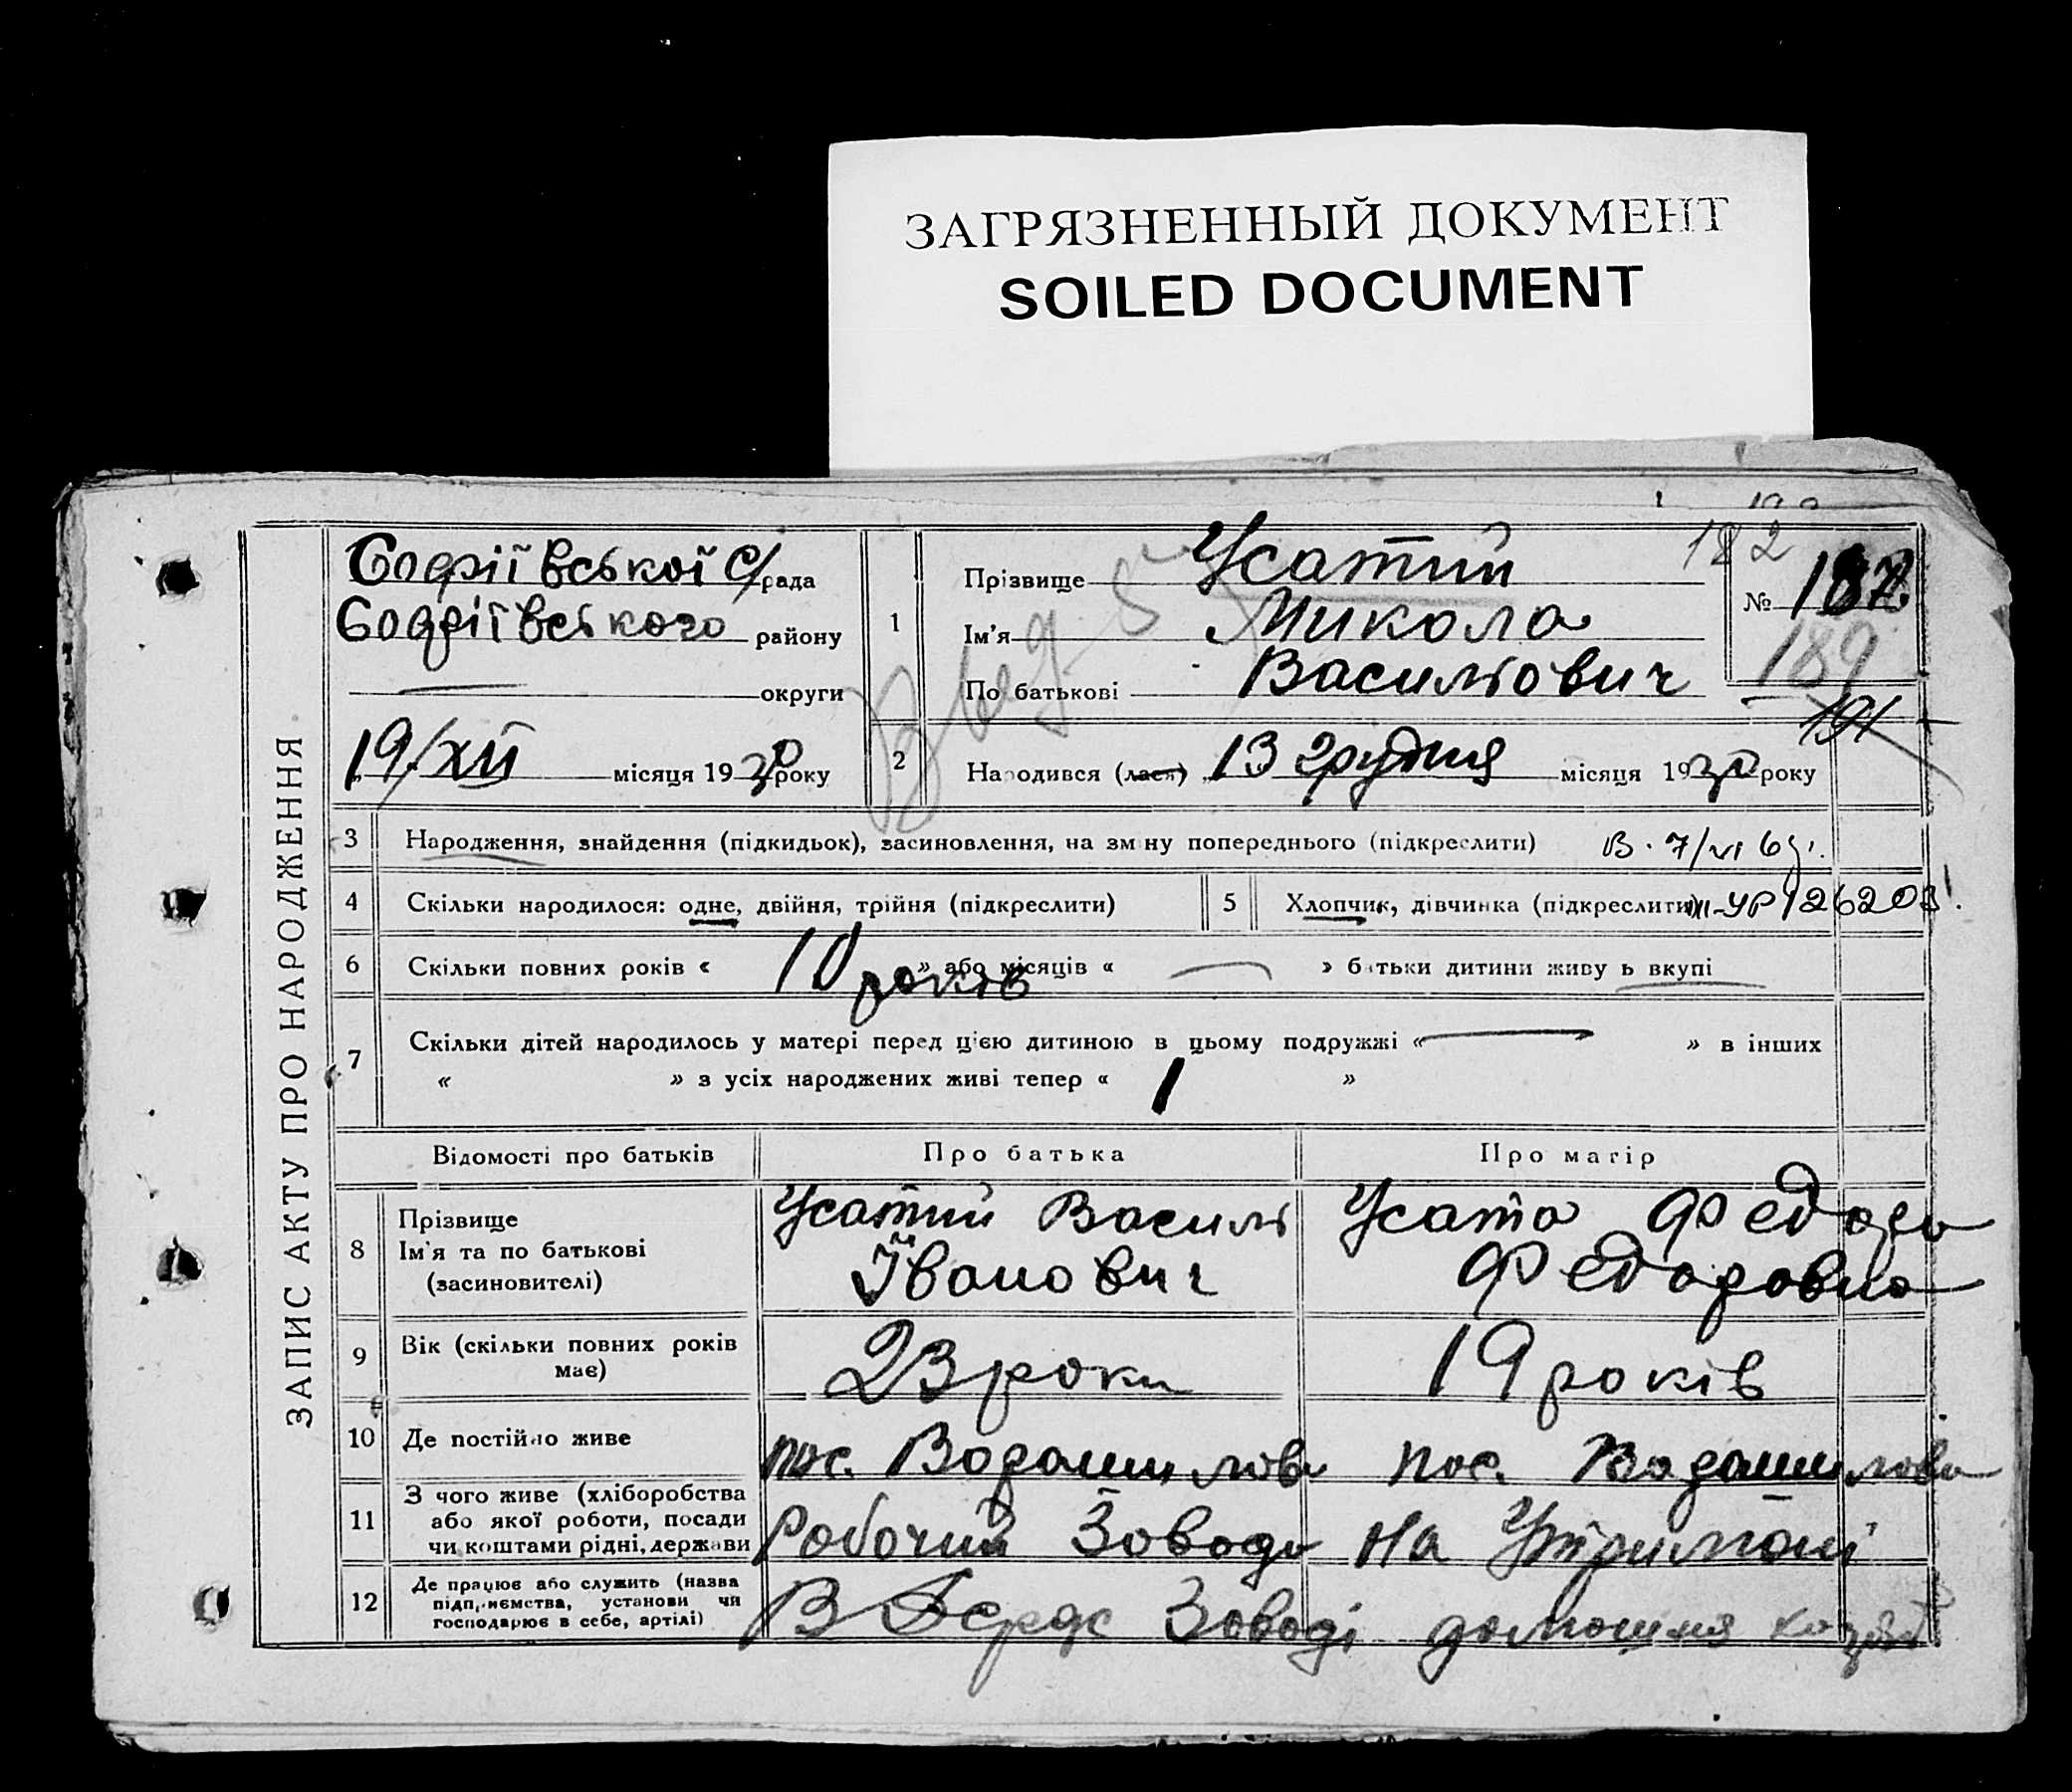 ЗАГРЯЗНЕННЫЙ ДОКУМЕНТ
SOILED DOCUMENT
ЗАПИС АКТУ ПРО НАРОДЖЕННЯ
Софіївської с/рада
Софіївського району
округи
19/XII місяця 1930 року
1
Прізвище Усатий
Ім'я Микола
По батькові Васильович
182
№ 187
189
191
2
Народився (лася) 13 грудня місяця 1930 року
3 Народження, знайдення (підкидьок), засиновлення, на зміну попереднього (підкреслити) В. 7/VI
4 Скільки народилося: одне, двійня, трійня (підкреслити)
5 Хлопчик, дівчинка (підкреслити) III-УР 126203
6 Скільки повних років « 10 років » або місяців « — » батьки дитини живуть вкупі
7 Скільки дітей народилось у матері перед цією дитиною в цьому подружжі « — » в інших
« » з усіх народжених живі тепер « 1 »
Відомості про батьків Про батька Про матір
8 Прізвище
Ім'я та по батькові
(засиновителі)
Усатий Василь
Іванович
Усата Федора
Федоровна
9 Вік (скільки повних років
має)
23 роки
19 років
10 Де постійно живе
пос. Ворошилова
пос. Ворошилова
11 З чого живе (хліборобства
або якої роботи, посади
чи коштами рідні, держави
Робочий Завода
на Утримані
12 Де працює або служить (назва
підприємства, установи чи
господарює в себе, артілі)
В Заводі
домашня